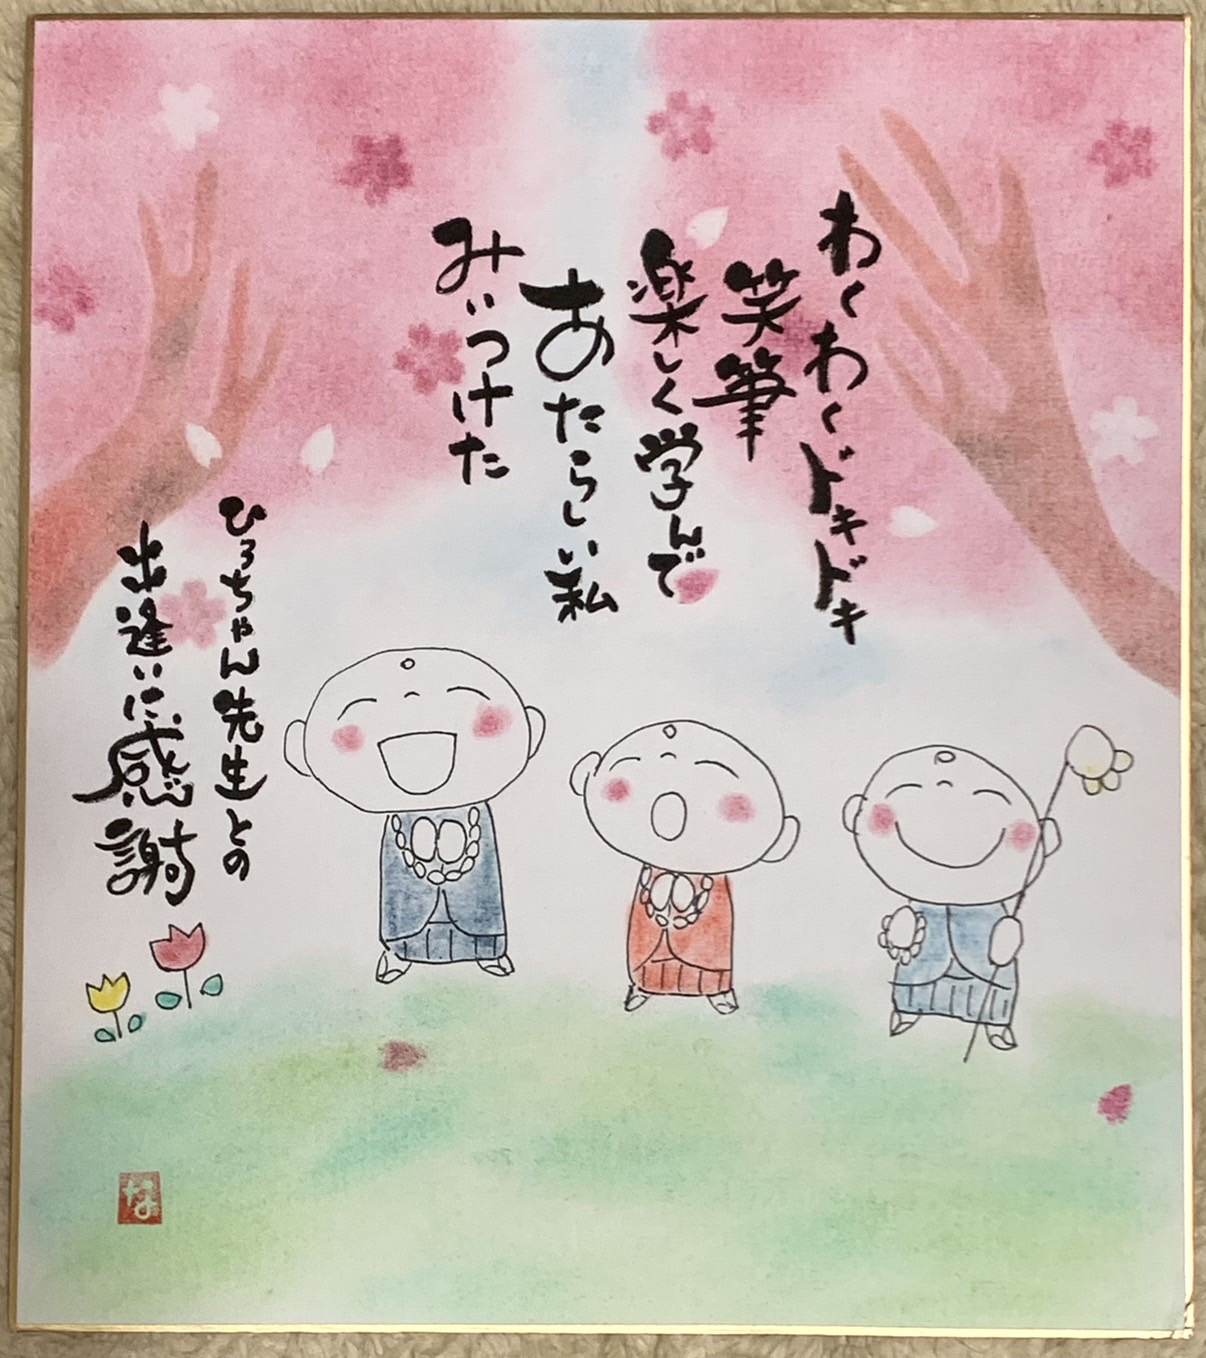 わくわくドキドキ
笑筆
楽しく学んで
あたらしい私
みぃつけた
ひろちゃん先生との
出逢いに感謝
な